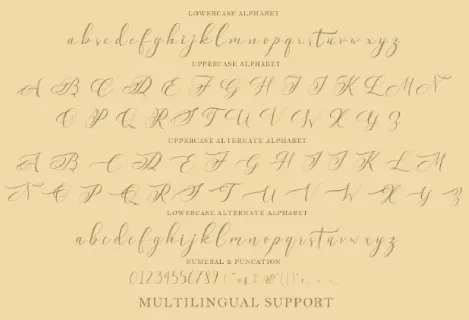 LOWERCASE ALPHABET
a b c d e f g h i j k l m n o p q r s t u v w x y z
UPPERCASE ALPHABET
A B C D E F G H I J K L M N
O P Q R S T U V W X Y Z
UPPERCASE ALTERNATE ALPHABET
A B C D E F G H I J K L M
N O P Q R S T U V W X Y Z
LOWERCASE ALTERNATE ALPHABET
a b c d e f g h i j k l m n o p q r s t u v w x y z
NUMERAL & PUNCATION
0123456789
MULTILINGUAL SUPPORT